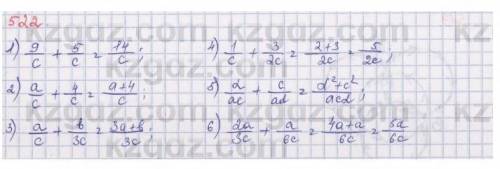 522.
1) 9/c + 5/c = 14/c ;
2) a/c + 4/c = a+4/c ;
3) a/c + b/3c = 3a+b/3c ;
4) 1/c + 3/2c = 2+3/2c = 5/2c ;
5) d/ac + c/ad = d²+c²/acd ;
6) 2a/3c + a/6c = 4a+a/6c = 5a/6c
kzgdz.com